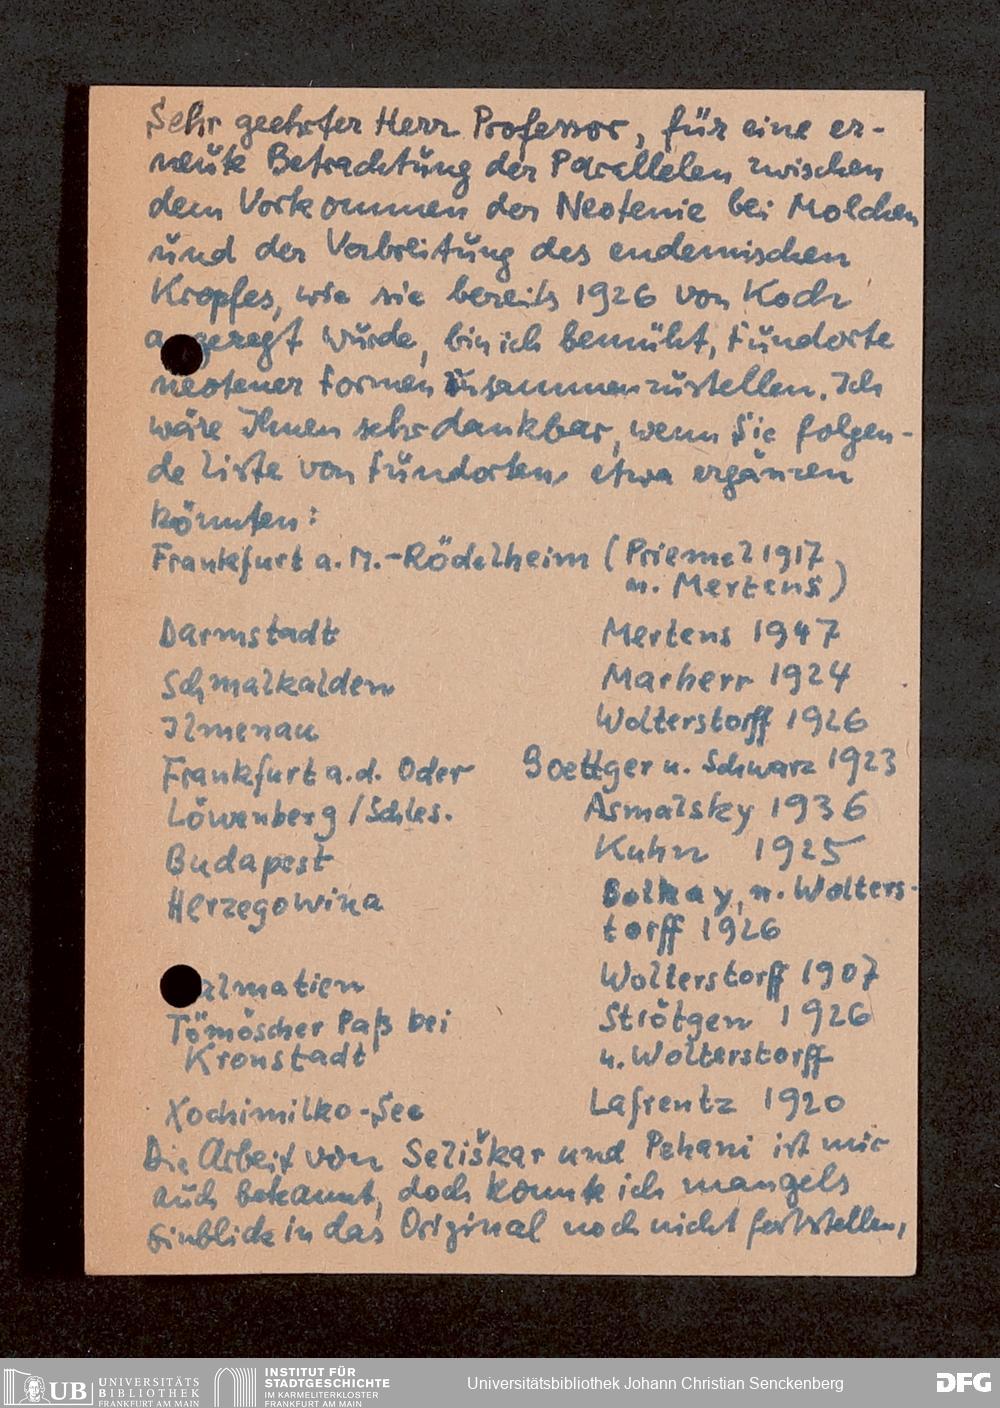 Sehr geehrter Herr Professor, für eine er-
neute Betrachtung der Parallelen zwischen
dem Vorkommen der Neotenie bei Molchen
und der Verbreitung des endemischen
Kropfes, wie sie bereits 1926 von Koch
a geregt wurde, bin ich bemüht, Fundorte
neotener Formen zusammenzustellen. Ich
wäre Ihnen sehr dankbar, wenn Sie folgen-
de Liste von Fundorten etwa ergänzen
könnten:
Frankfurt a. M.-Rödelheim (Priemel 1917
u. Mertens)
Darmstadt Mertens 1947
Schmalkalden Marherr 1924
Ilmenau Wolterstorff 1926
Frankfurt a.d. Oder Boettger u. Schwarz 1923
Löwenberg / Schles. Asmalsky 1936
Budapest Kuhn 1925
Herzegowina Bolkay, u. Wolters-
torff 1926
almatien Wolterstorff 1907
Tömöscher Paß bei Strötgen 1926
Kronstadt u. Wolterstorff
Xochimilko-See Lafrentz 1920
Die Arbeit von Seliškar und Pehani ist mir
auch bekannt, doch konnte ich mangels
Einblick in das Original noch nicht feststellen,
UB UNIVERSITÄTS
BIBLIOTHEK
FRANKFURT AM MAIN
INSTITUT FÜR
STADTGESCHICHTE
IM KARMELITERKLOSTER
FRANKFURT AM MAIN
Universitätsbibliothek Johann Christian Senckenberg
DFG